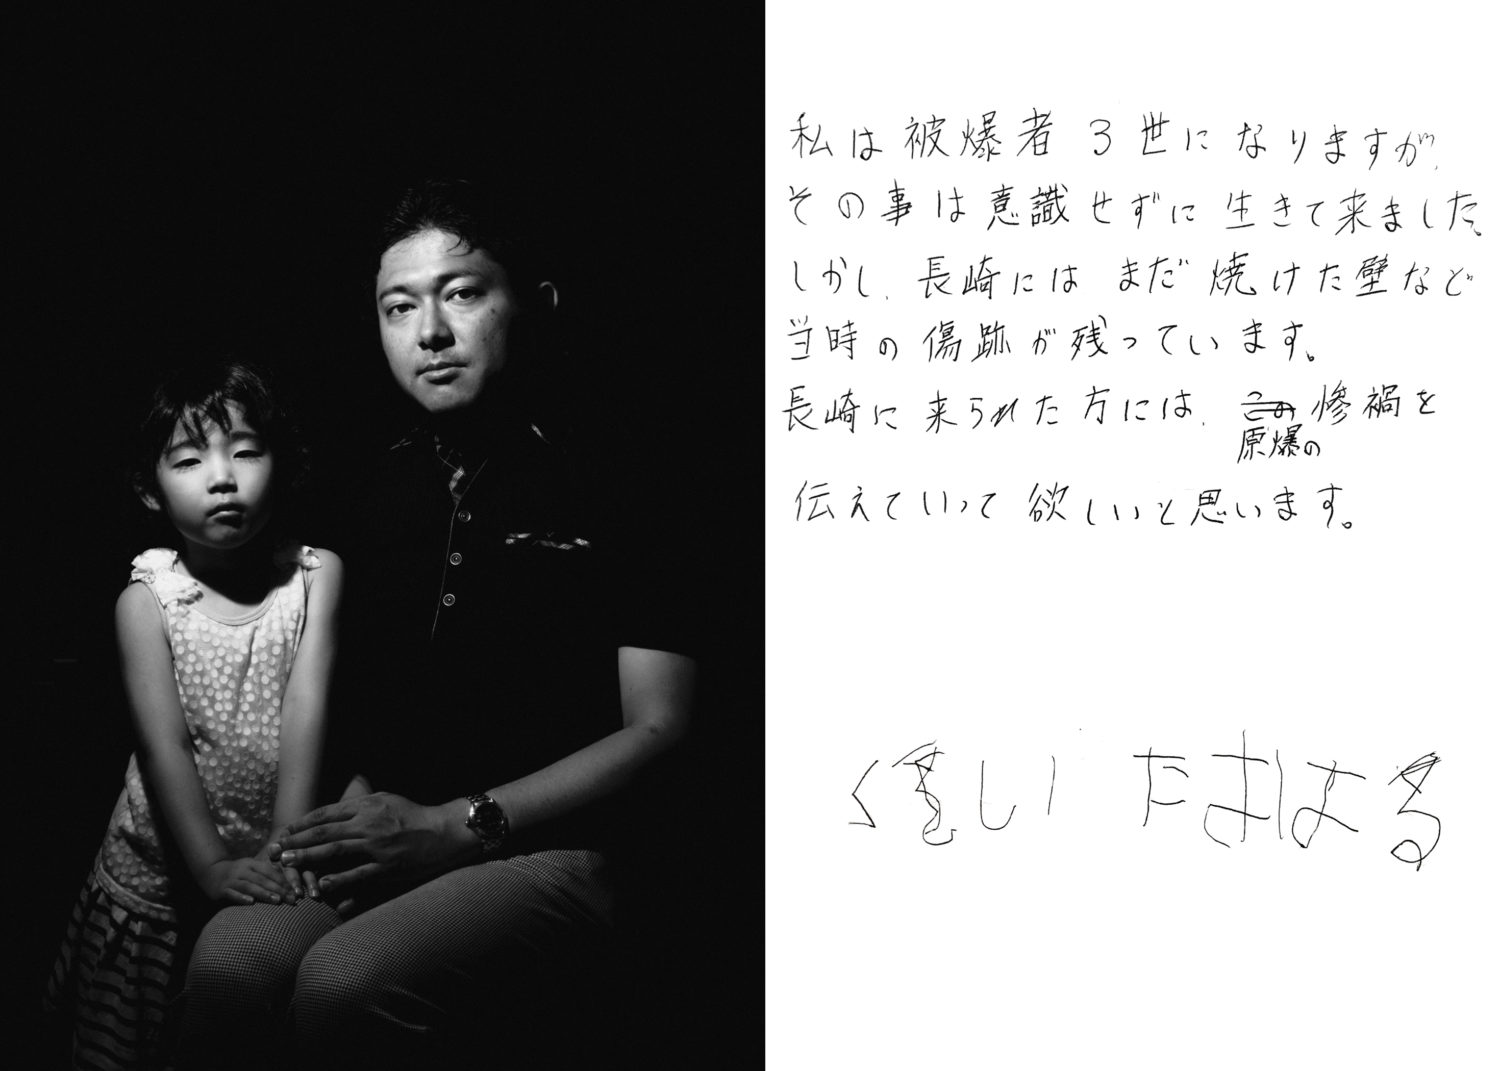 私は被爆者3世になりますが、
その事は意識せずに生きて来ました。
しかし、長崎にはまだ焼けた壁など
当時の傷跡が残っています。
長崎に来られた方には、この惨禍を
原爆の
伝えていって欲しいと思います。